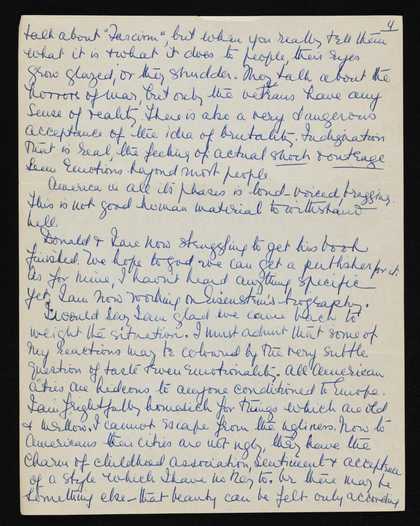 4
talk about "Fascism", but when you really tell them
what it is & what it does to people, their eyes
grow glazed, or they shudder. They talk about the
horrors of war, but only the veterans have any
sense of reality. There is also a very dangerous
acceptance of the idea of brutality. Indignation
that is real, the feeling of actual shock & outrage
seem emotions beyond most people.
America in all its phases is loud voiced, bragging.
This is not good human material to withstand
hell.
Donald & I are now struggling to get his book
finished. We hope to god we can get a publisher for it.
As for mine, I haven't heard anything specific
yet, I am now working on Eisenstein's biography.
I would say I am glad we came back to
weight the situation. I must admit that some of
my reactions may be coloured by the very subtle
question of taste & even emotionality. All American
cities are hideous to anyone conditioned to Europe.
I am frightfully homesick for things which are old
& mellow. I cannot escape from the ugliness. Now to
Americans their cities are not ugly, they have the
charm of childhood association, sentiment & acceptance
of a style which I have no key to. Or there may be
something else – that beauty can be felt only according